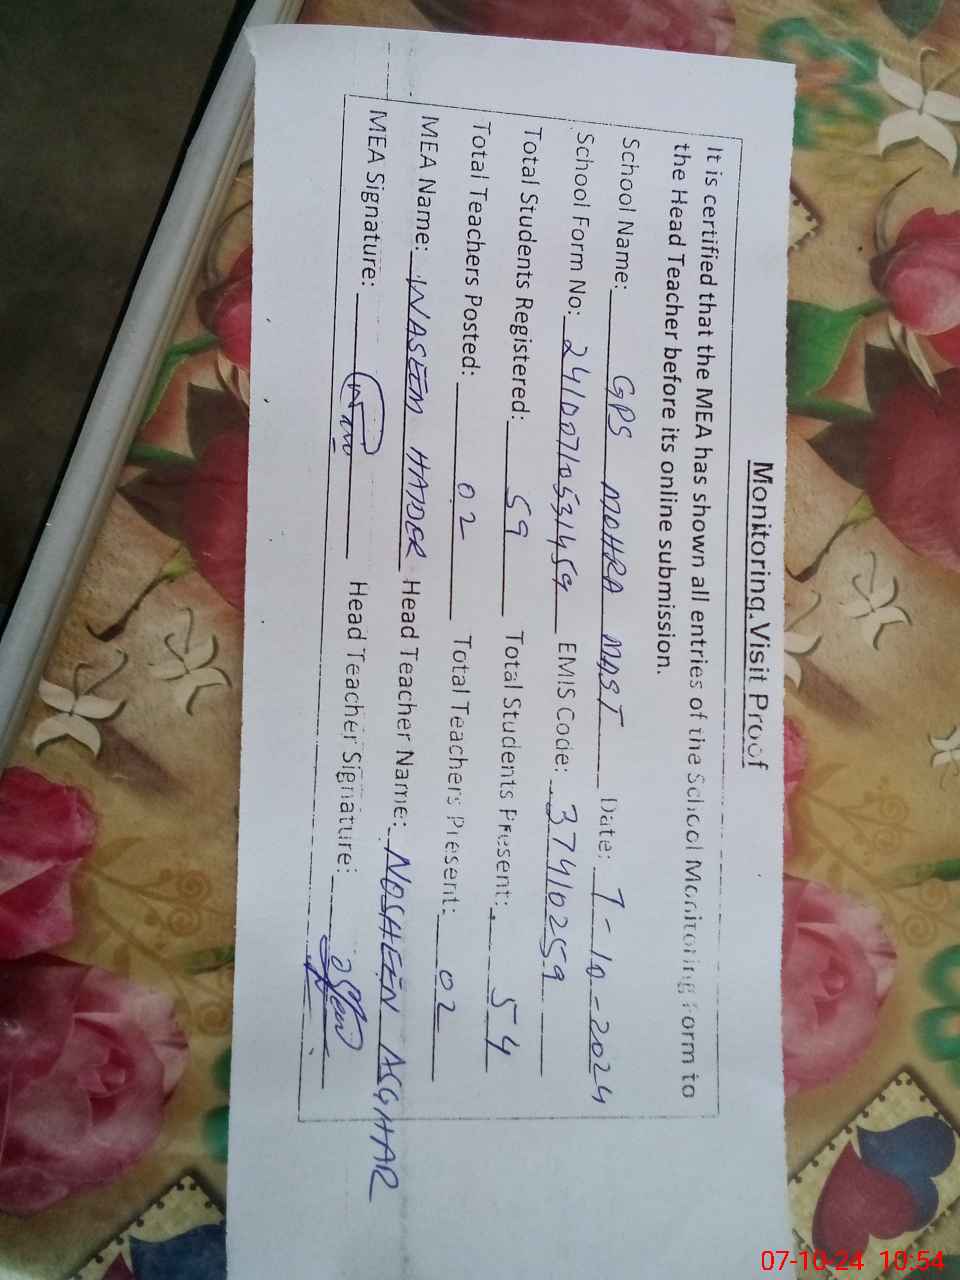 Monitoring Visit Proof
It is certified that the MEA has shown all entries of the School Monitoring Form to
the Head Teacher before its online submission.
School Name: GPS MOHRA MAST Date: 7-10-2024
School Form No: 24100710531459 EMIS Code: 37410259
Total Students Registered: 59 Total Students Present: 54
Total Teachers Posted: 02 Total Teachers Present: 02
MEA Name: WASEEM HAIDER Head Teacher Name: NOSHEEN ASGHAR
MEA Signature: Head Teacher Signature:
07-10-24 10:54